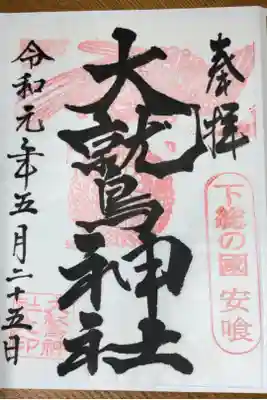 奉拝
下総の國 安喰
大鷲神社
令和元年五月二十五日